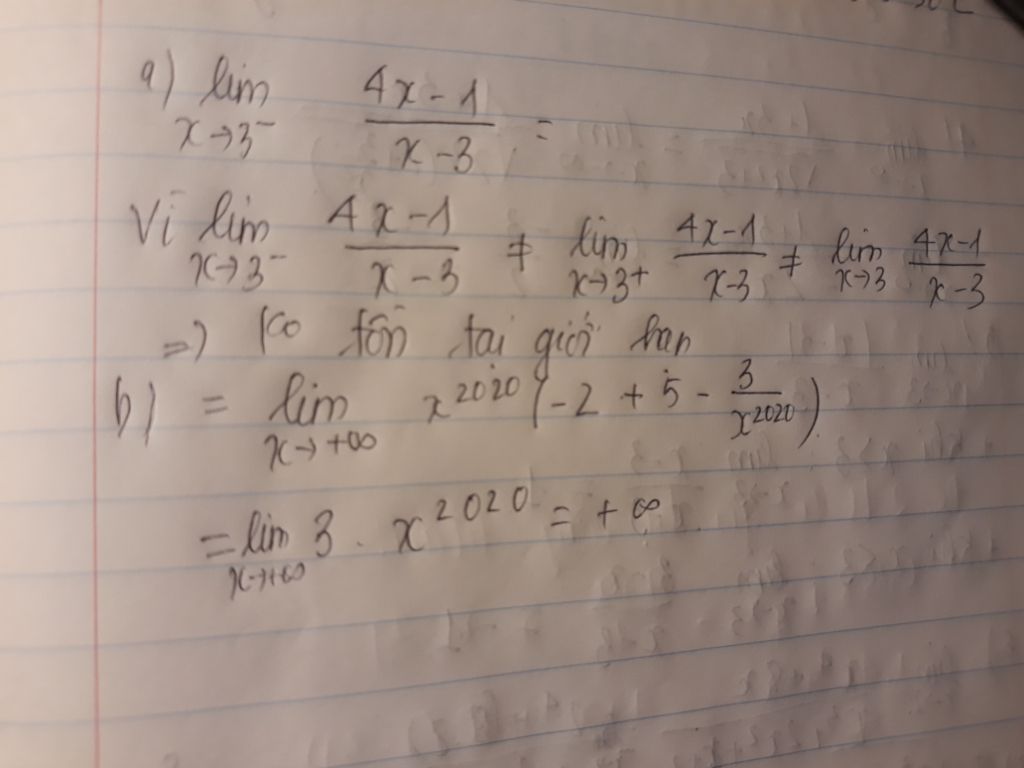 a) lim x→3⁻ (4x-1)/(x-3) =
Vì lim x→3⁻ (4x-1)/(x-3) ≠ lim x→3⁺ (4x-1)/(x-3) ≠ lim x→3 (4x-1)/(x-3)
=> ko tồn tại giới hạn
b) = lim x→+∞ x²⁰²⁰ (-2 + 5 - 3/x²⁰²⁰)
= lim x→+∞ 3 . x²⁰²⁰ = +∞